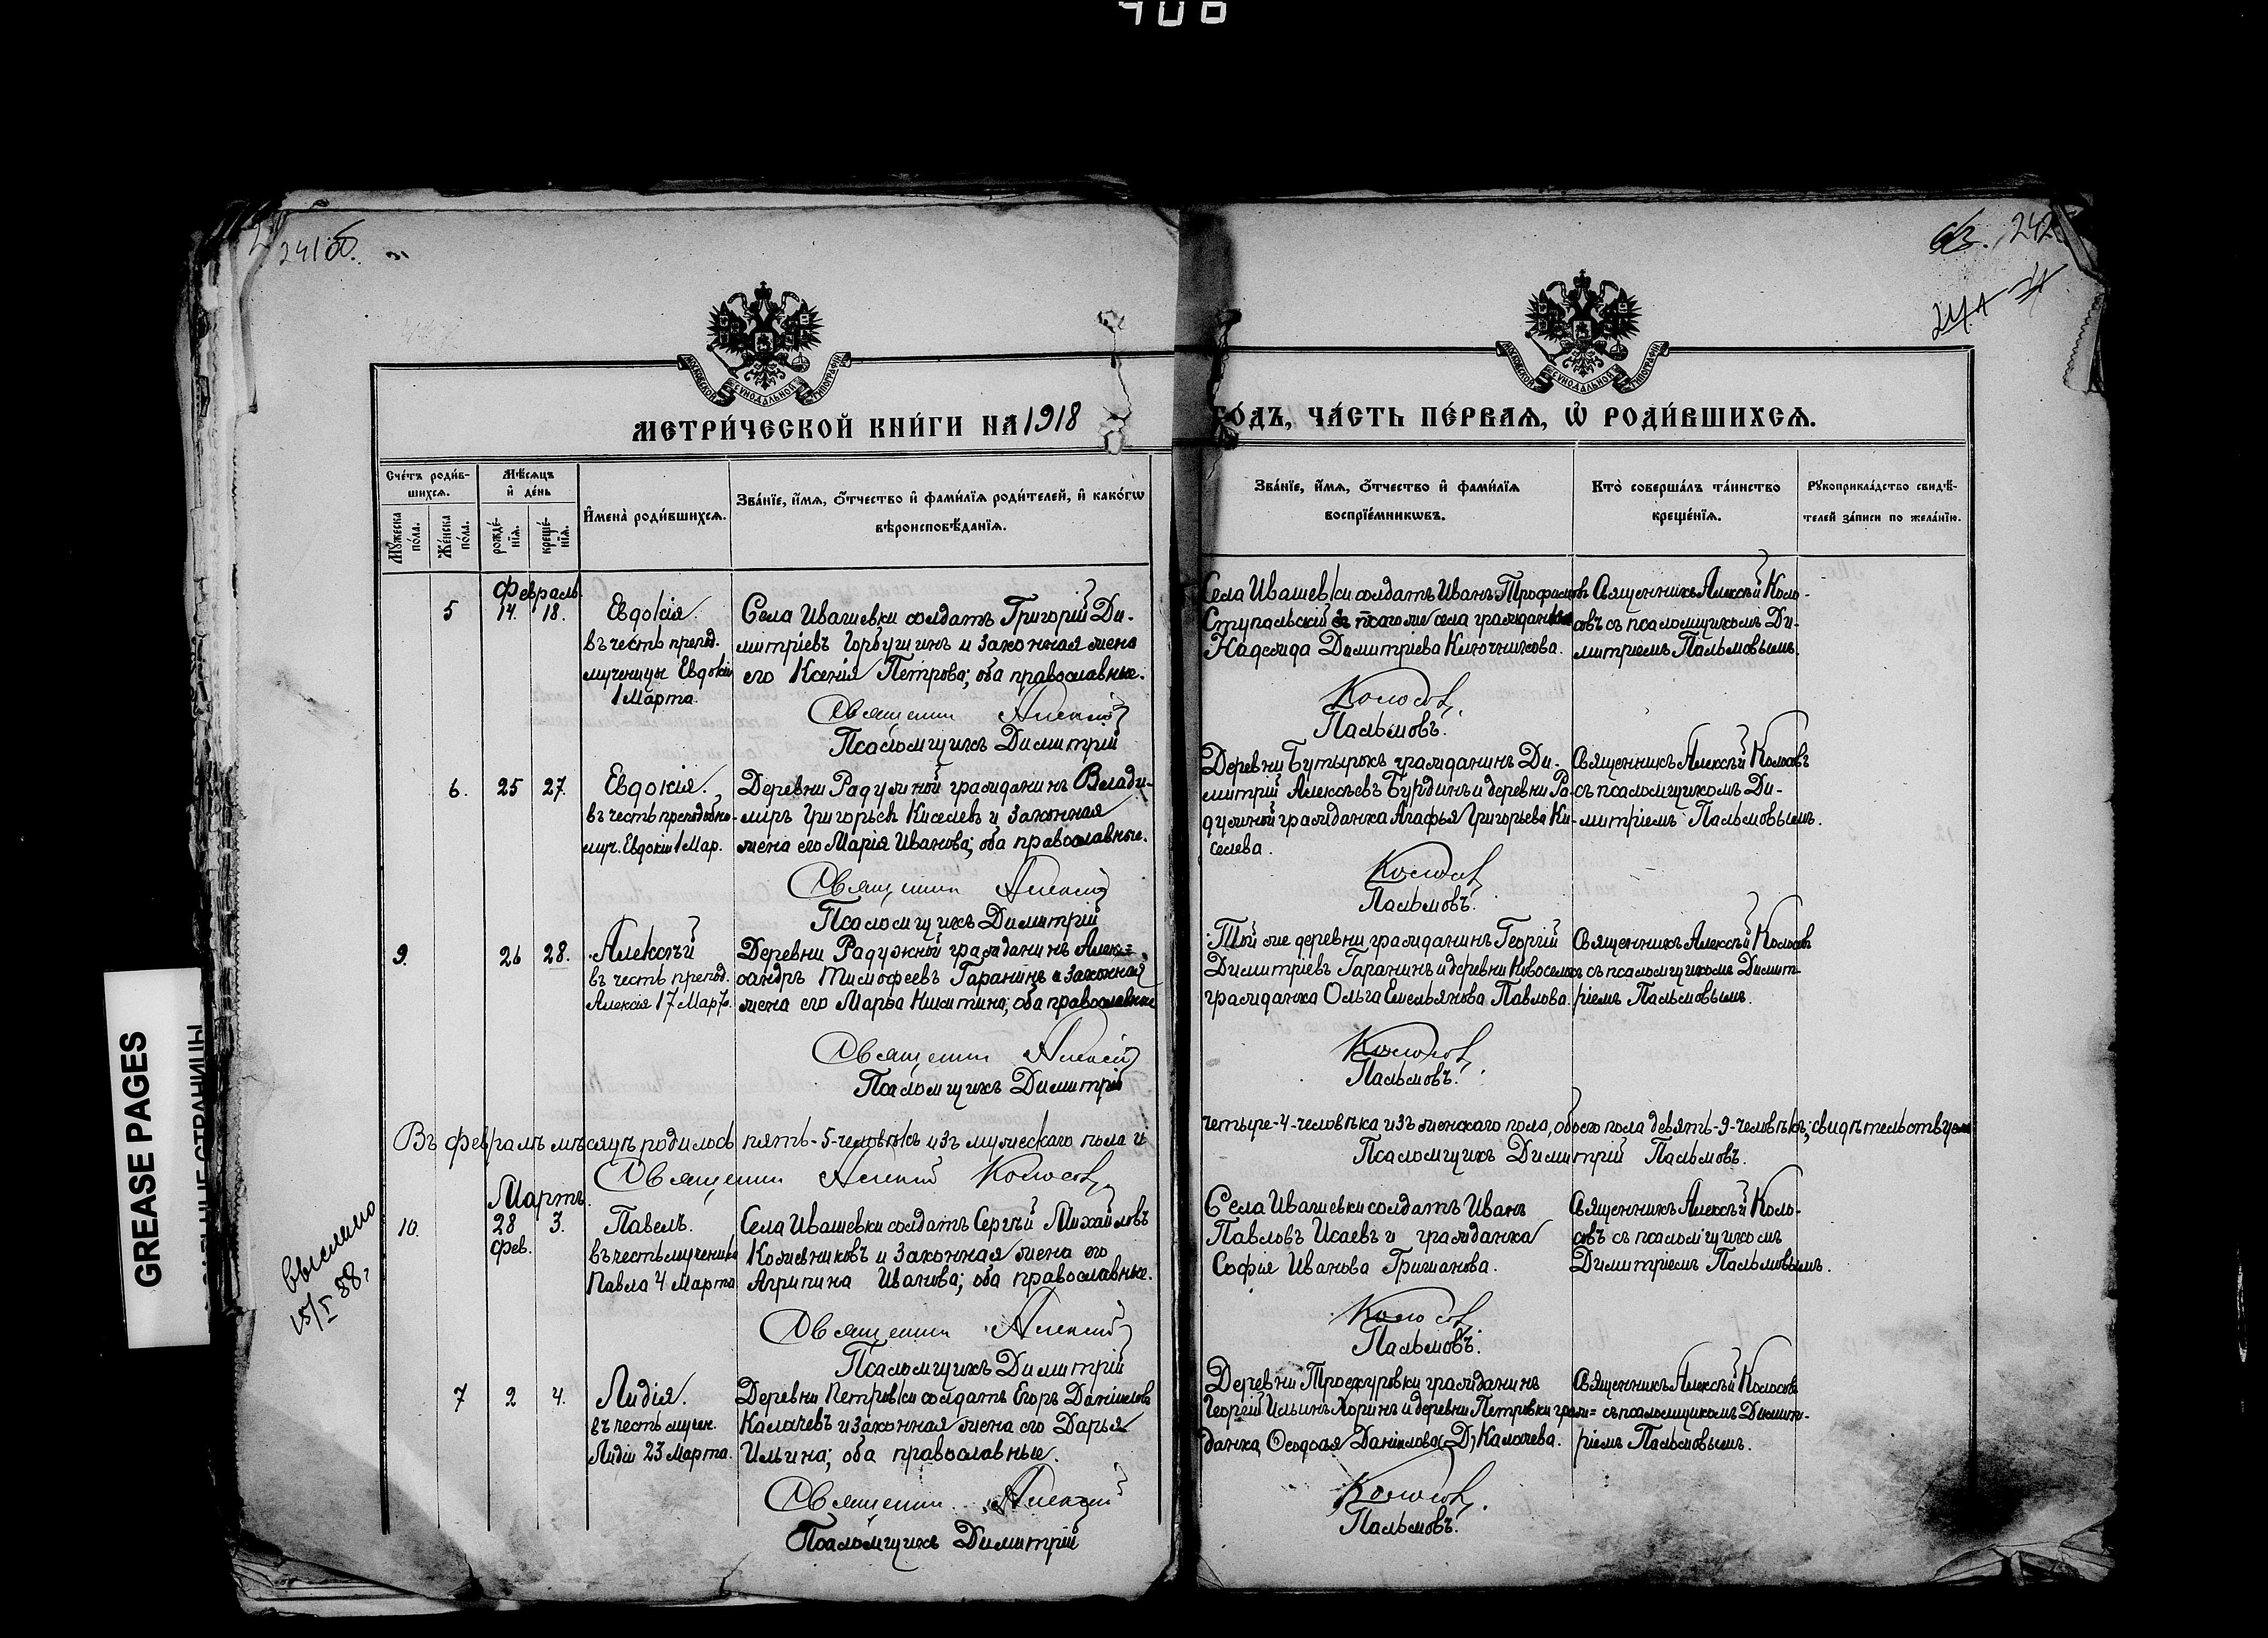 406
241 об.
63. 242
МОСКОВСКОЙ СУНОДАЛЬНОЙ ТИПОГРАФІИ
МОСКОВСКОЙ СУНОДАЛЬНОЙ ТИПОГРАФІИ
МЕТРИ́ЧЕСКОЙ КНИ́ГИ НА 1918
ГО́ДЪ, ЧА́СТЬ ПЕ́РВАѦ, Ѡ҆ РОДИ́ВШИХСѦ.
Сче́тъ роди́в-
шихсѧ.
Мѣ́сѧцъ
и҆ де́нь
Мꙋ́жеска
по́ла.
Же́нска
по́ла.
рожде́-
нїѧ.
креще́-
нїѧ.
И҆мена̀ роди́вшихсѧ.
Зва́нїе, и҆́мѧ, ѻ҆́тчество и҆ фами́лїѧ роди́телей, и҆ како́гѡ
вѣроисповѣ́данїѧ.
Зва́нїе, и҆́мѧ, ѻ҆́тчество и҆ фами́лїѧ
воспрїе́мникѡвъ.
Кто̀ соверша́лъ та́инство
креще́нїѧ.
Рꙋкоприкла́дство свидѣ́-
телей за́писи по жела́нїю.
Февраль.
5 14. 18. Евдокія.
въ честь препод.
мученицы Евдокіи
1 Марта.
Села Ивашевки солдатъ Григорій Ди-
митріевъ Горбушинъ и законная жена
его Ксенія Петрова; оба православные.
Священникъ Алексій
Псаломщикъ Димитрій
Села Ивашевки солдатъ Иванъ Трофимовъ
Ступальскій и того же села гражданка
Надежда Димитріева Ключникова.
Колосовъ.
Пальмовъ.
Священникъ Алексѣй Коло-
совъ съ псаломщикомъ Ди-
митріемъ Пальмовымъ.
6. 25 27. Евдокія.
въ честь преподобно-
муч. Евдокіи 1 Мар.
Деревни Радужной гражданинъ Влади-
міръ Григорьевъ Киселевъ и законная
жена его Марія Иванова; оба православные.
Священникъ Алексій
Псаломщикъ Димитрій
Деревни Бутырокъ гражданинъ Ди-
митрій Алексѣевъ Бурдинъ и деревни Ра-
дужной гражданка Агафья Григорьева Ки-
селева.
Колосовъ
Пальмовъ.
Священникъ Алексѣй Колосовъ
съ псаломщикомъ Ди-
митріемъ Пальмовымъ.
9. 26 28. Алексѣй
въ честь препод.
Алексія 17 Марта.
Деревни Радужной гражданинъ Алек=
сандръ Тимофеевъ Гаранинъ и законная
жена его Марѳа Никитина; оба православные
Священникъ Алексій
Псаломщикъ Димитрій
Той же деревни гражданинъ Георгій
Димитріевъ Гаранинъ и деревни Новоселокъ
гражданка Ольга Емельянова Павлова.
Колосовъ
Пальмовъ.
Священникъ Алексѣй Колосовъ
съ псаломщикомъ Димит-
ріемъ Пальмовымъ.
Въ февралѣ мѣсяцѣ родилось пять-5-человѣкъ изъ мужескаго пола и
четыре-4-человѣка изъ женскаго пола, обоего пола девять-9-человѣкъ; свидѣтельствуемъ
Священникъ Алексій Колосовъ
Псаломщикъ Димитрій Пальмовъ.
Мартъ.
10. 28 3. Павелъ.
Фев.
въ честь мученика
Павла 4 Марта
Села Ивашевки солдатъ Сергѣй Михайловъ
Кожевниковъ и законная жена его
Агрипина Иванова; оба православные.
Священникъ Алексій
Псаломщикъ Димитрій
Села Ивашевки солдатъ Иванъ
Павловъ Исаевъ и гражданка
Софія Иванова Гришанова.
Колосовъ
Пальмовъ.
Священникъ Алексѣй Коло-
совъ съ псаломщикомъ
Димитріемъ Пальмовымъ.
выслано
15/I 58.
7 2 4. Лидія.
въ честь мучен.
Лидіи 23 Марта.
Деревни Петровки солдатъ Егоръ Даніиловъ
Калачевъ и законная жена его Дарья
Ильина; оба православные.
Священникъ Алексій
Псаломщикъ Димитрій
Деревни Троекуровки гражданинъ
Георгій Ильинъ Хоринъ и деревни Петровки граж=
данка Ѳеодосія Даніилова (Д) Калачева.
Колосовъ.
Пальмовъ.
Священникъ Алексѣй Колосовъ
съ псаломщикомъ Димит-
ріемъ Пальмовымъ.
GREASE PAGES
СТРАНИЦЫ